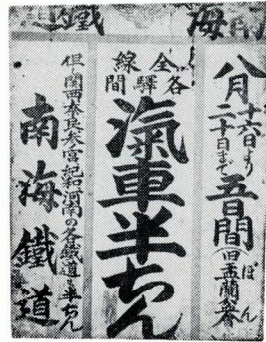 八月十六日より二十日まで五日間(旧盂蘭盆)
ぼん
全線
各驛間
汽車半ちん
但関西奈良参宮紀和河南の各鐵道も半ちん
南海鐵道